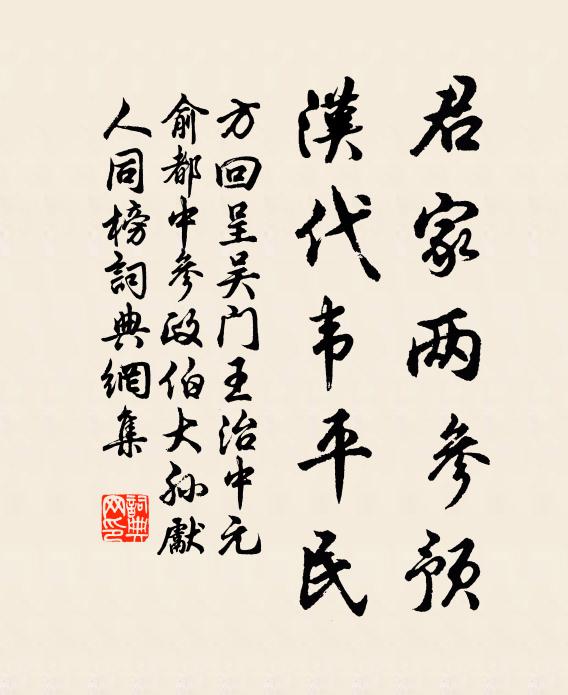 君家两参預
漢代韦平民
方回呈吴门王治中元
俞都中参政伯大孙獻
人同榜詞典網集
詞典网印